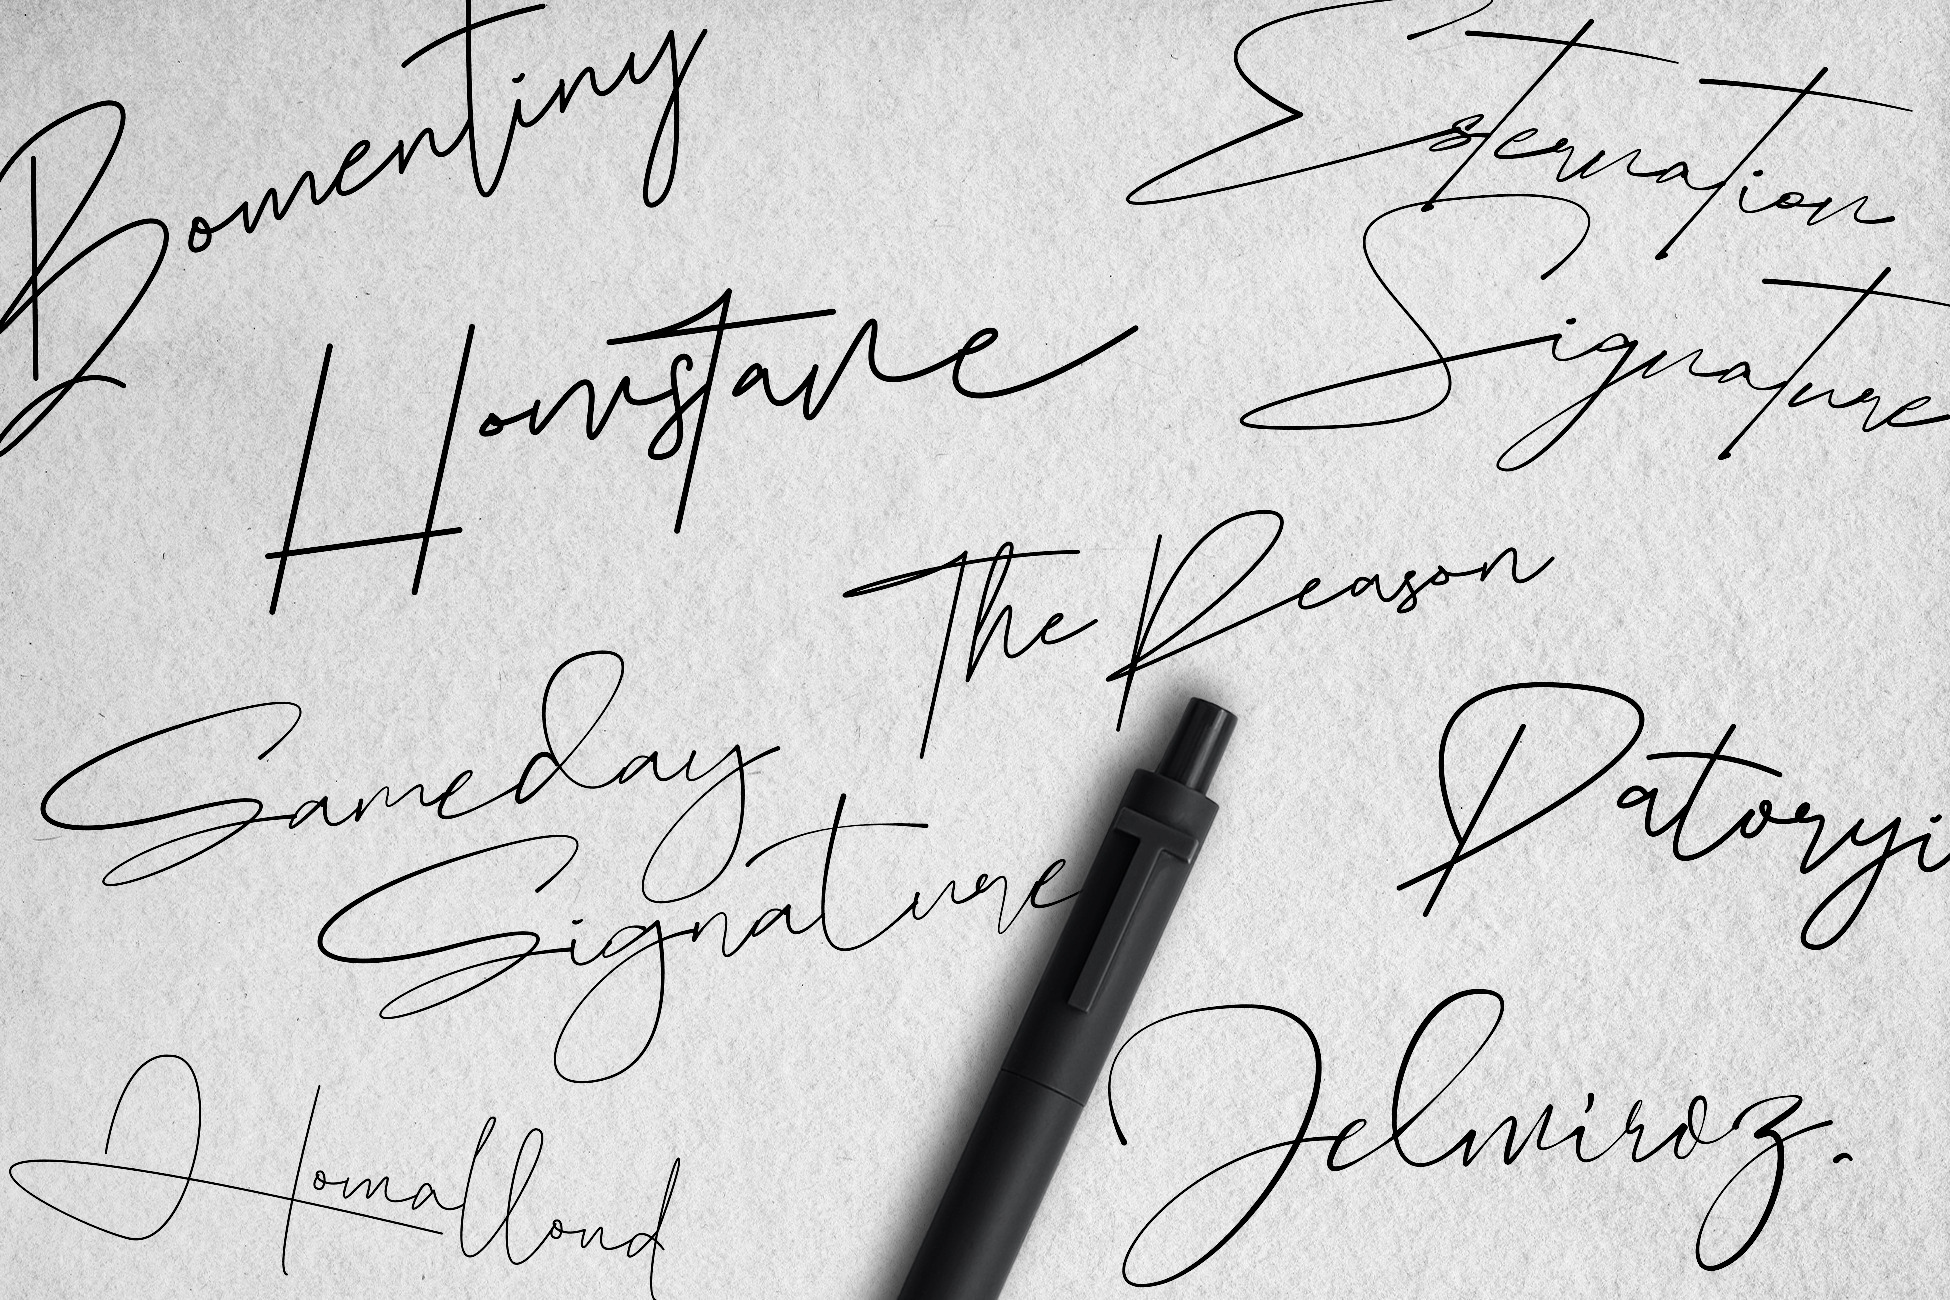 Bomentiny
Esternation
Signature
Howstave
The Reason
Sameday
Signature
Patoryi
Homallond
Jelmiroz.